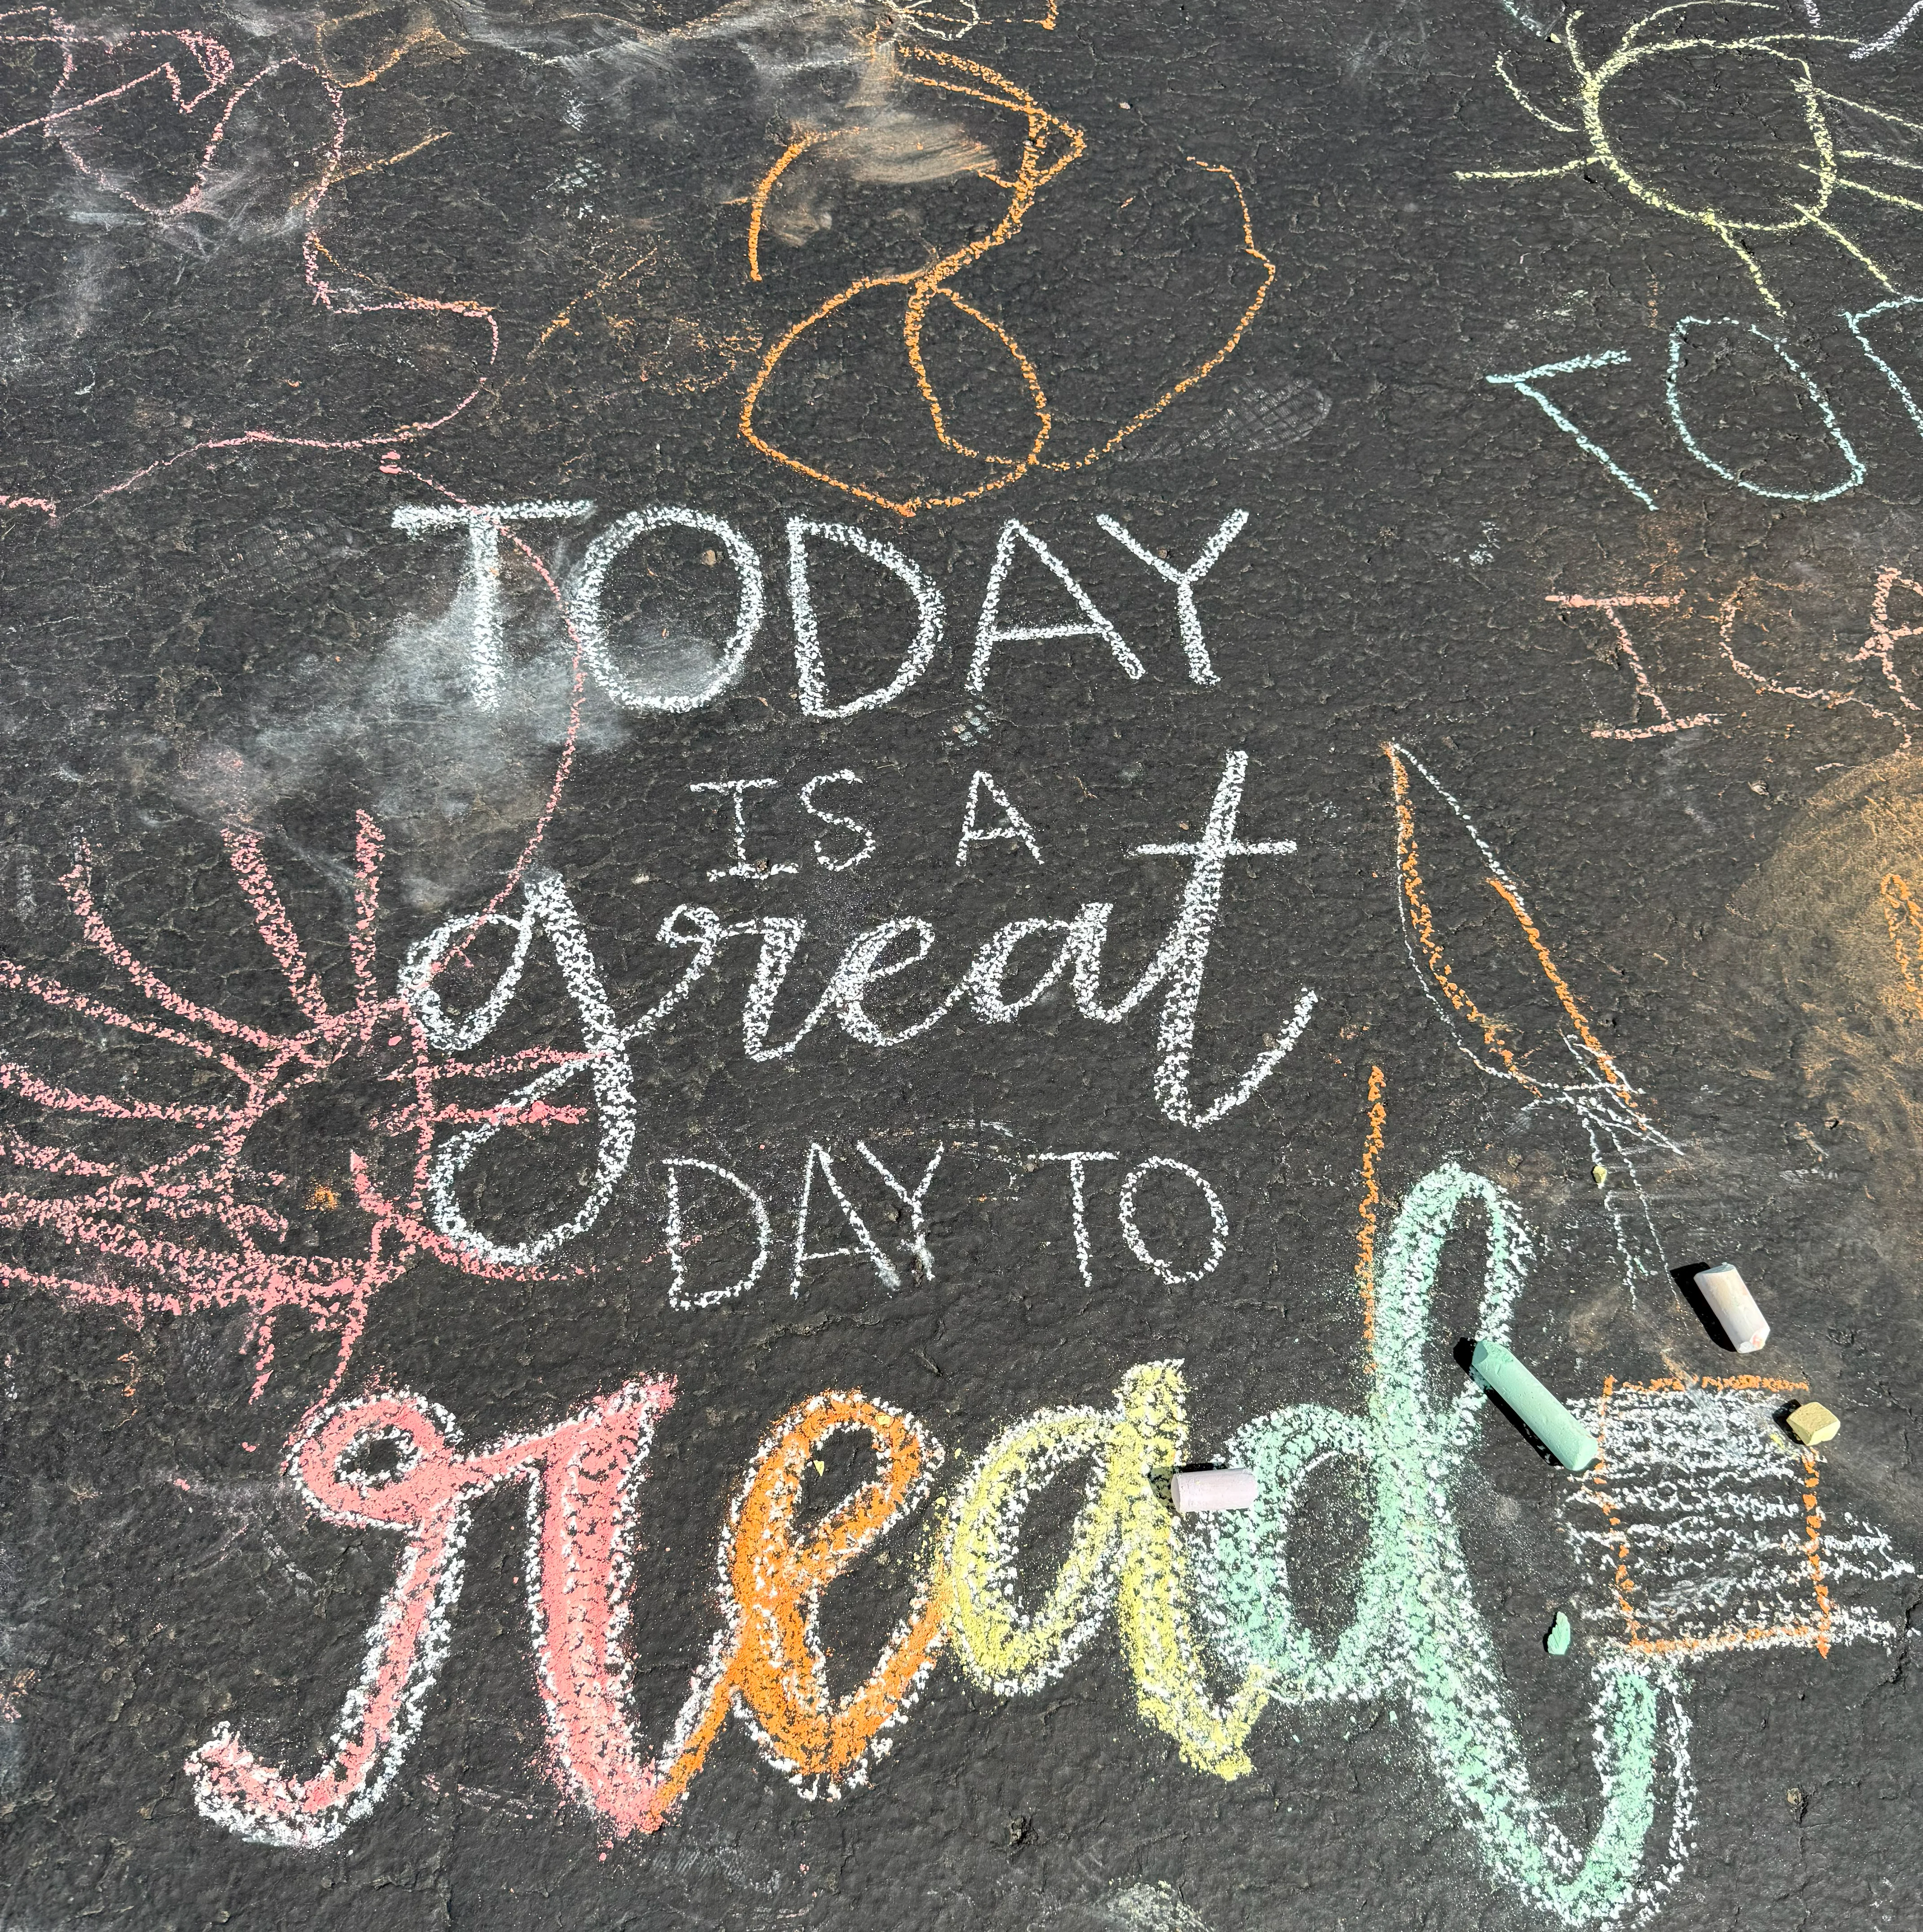 TODAY
IS A
great
DAY TO
read